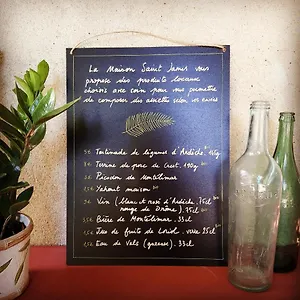 La Maison Saint James vous
propose des produits locaux
choisis avec soin pour vous permettre
de composer des assiettes selon vos envies
9€ Tartinade de légumes d'Ardèche 140g
7€ Terrine de porc de Crest. 190g
3€ Picodon de Montélimar
2,5€ Yahourt maison
3€ Vin (blanc et rosé d'Ardèche. 75cl
rouge de Drôme). 75cl
3,5€ Bière de Montélimar. 33cl
de fruits de Loriol. verre 25cl
2,5€ Eau de Vals (gazeuse). 33cl